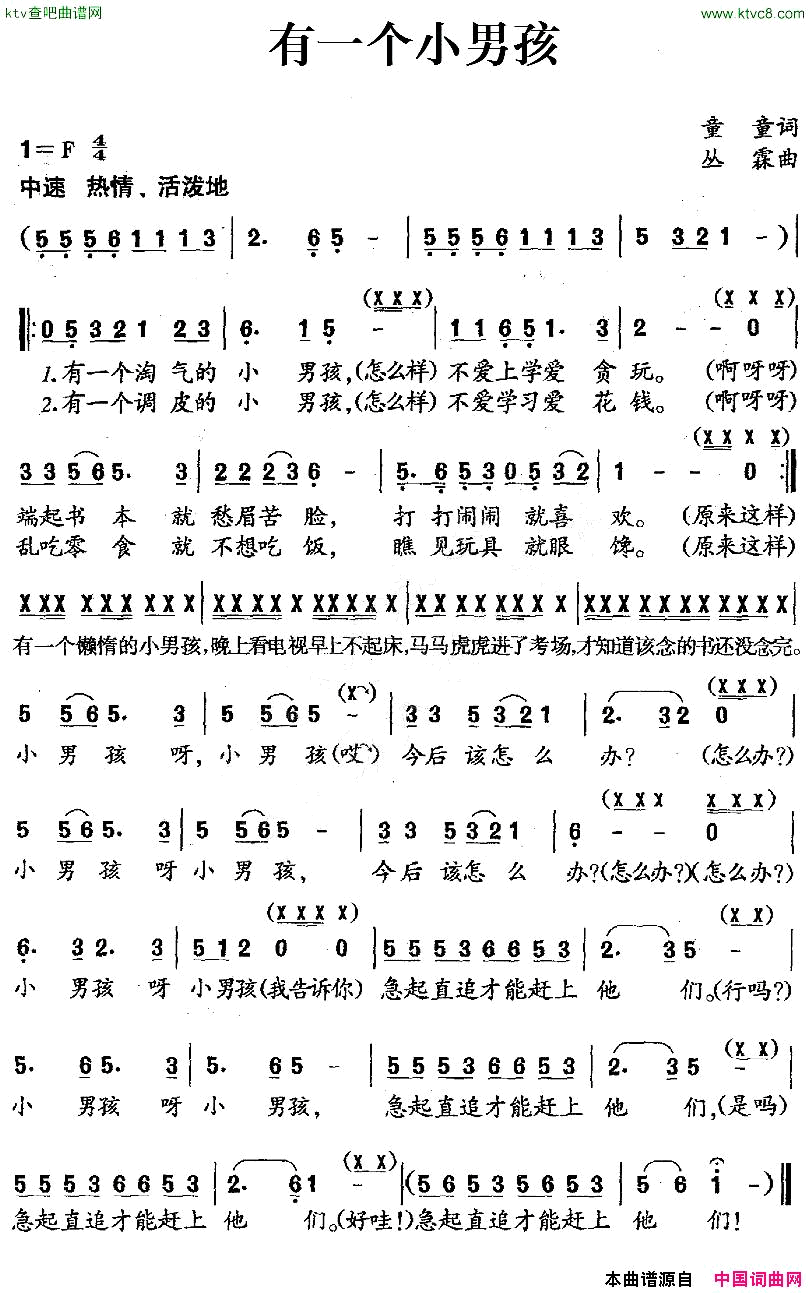 ktv查吧曲谱网 www.ktvc8.com
有一个小男孩
童 童词
1=F 4/4 丛 霖曲
中速 热情、活泼地
(5 5 5 6 1 1 1 3 | 2. 6 5 - | 5 5 5 6 1 1 1 3 | 5 3 2 1 -)|
(X X X) (X X X)
‖: 0 5 3 2 1 2 3 | 6. 1 5 - | 1 1 6 5 1. 3 | 2 - - 0
1.有一个淘气的小 男孩,(怎么样)不爱上学爱 贪玩。(啊呀呀)
2.有一个调皮的小 男孩,(怎么样)不爱学习爱 花钱。(啊呀呀)
(X X X X)
3 3 5 6 5. 3 | 2 2 2 3 6 - | 5. 6 5 3 0 5 3 2 | 1 - - 0 :‖
端起书本 就 愁眉苦脸, 打打闹闹 就喜 欢。(原来这样)
乱吃零食 就 不想吃饭, 瞧见玩具 就眼 馋。(原来这样)
X X X X X X X X X X | X X X X X X X X X X | X X X X X X X X | X X X X X X X X X X
有一个懒惰的小男孩,晚上看电视早上不起床,马马虎虎进了考场,才知道该念的书还没念完。
(X) (X X X)
5 5 6 5. 3 | 5 5 6 5 - | 3 3 5 3 2 1 | 2. 3 2 0
小 男 孩 呀, 小 男 孩(哎) 今后该怎么 办?(怎么办?)
(X X X X X X)
5 5 6 5. 3 | 5 5 6 5 - | 3 3 5 3 2 1 | 6 - - 0
小 男 孩 呀 小 男 孩, 今后 该怎 么 办?(怎么办?)(怎么办?)
(X X X X) (X X)
6. 3 2. 3 | 5 1 2 0 0 | 5 5 5 3 6 6 5 3 | 2. 3 5 -
小 男孩 呀 小男孩(我告诉你) 急起直追才能赶上 他 们。(行吗?)
(X X)
5. 6 5. 3 | 5. 6 5 - | 5 5 5 3 6 6 5 3 | 2. 3 5 -
小 男孩 呀 小 男孩, 急起直追才能赶上 他 们,(是吗)
(X X)
5 5 5 3 6 6 5 3 | 2. 6 1 - |(5 6 5 3 5 6 5 3 | 5 6 i -)‖
急起直追才能赶上 他 们。(好哇!)急起直追才能赶上 他 们!
本曲谱源自 中国词曲网